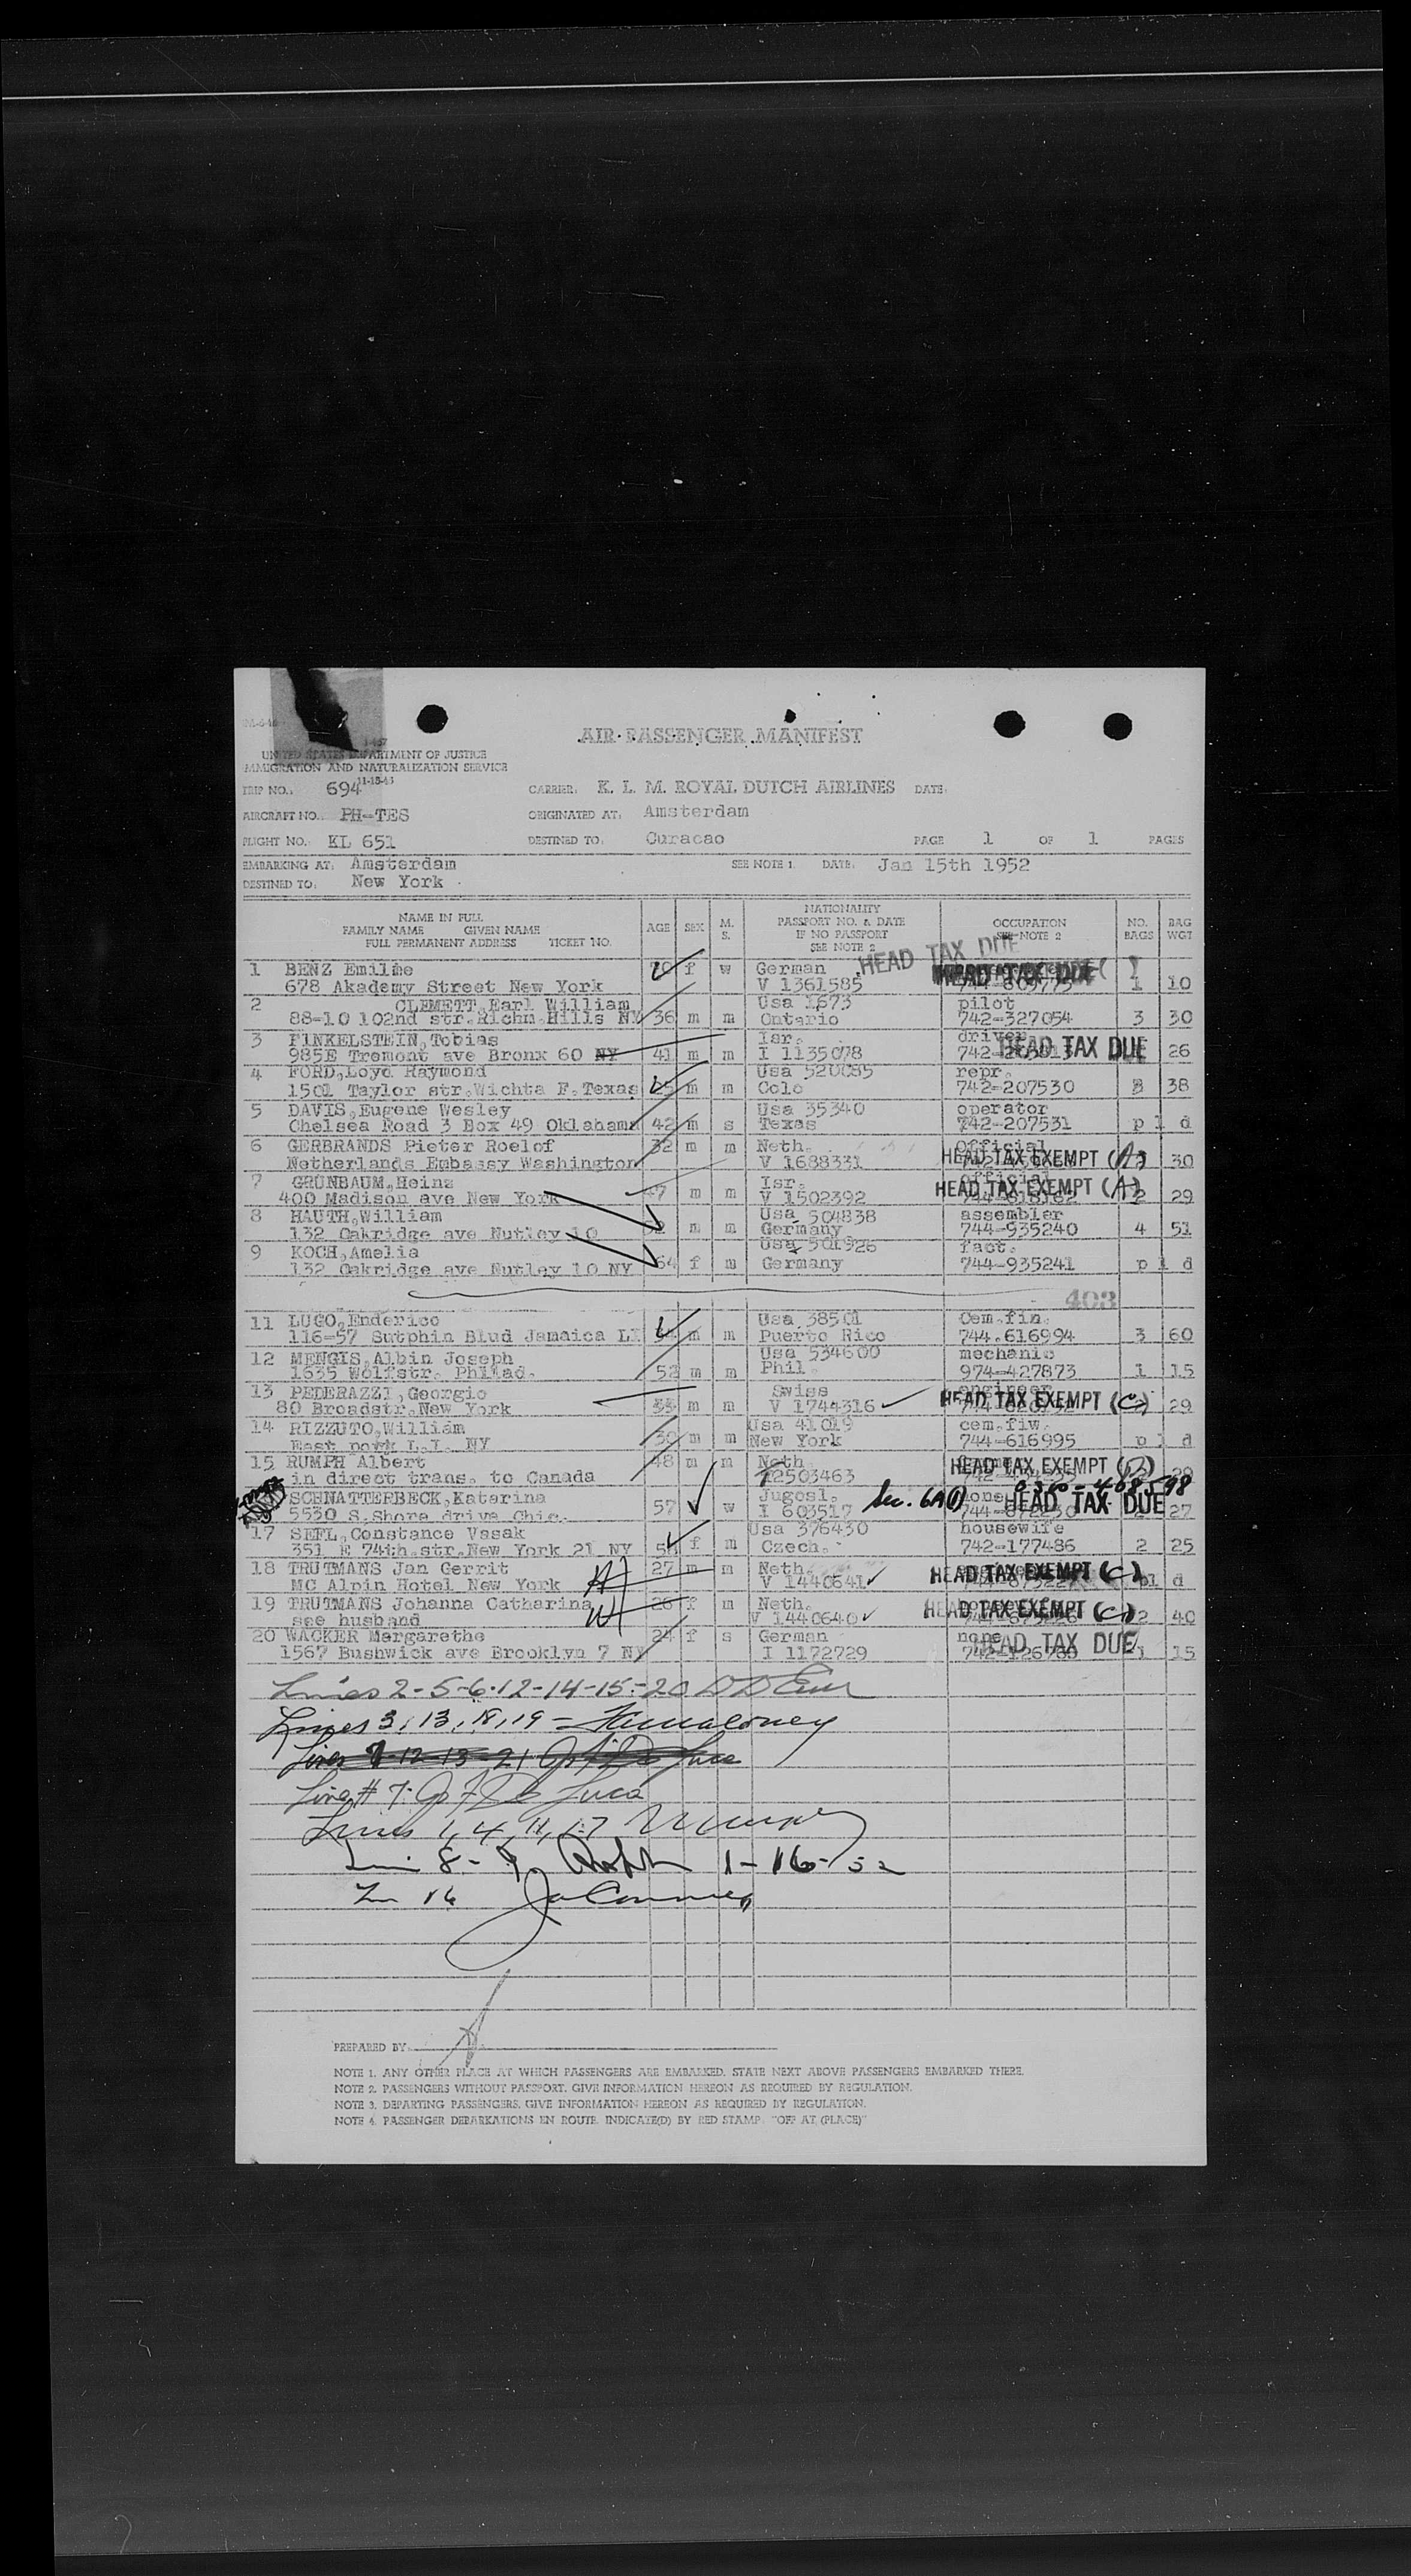 AIR PASSENGER MANIFEST
UNITED STATES DEPARTMENT OF JUSTICE
IMMIGRATION AND NATURALIZATION SERVICE
11-15-43
TRIP NO. 694 CARRIER: K. L. M. ROYAL DUTCH AIRLINES DATE:
AIRCRAFT NO. PH-TES ORIGINATED AT: Amsterdam
FLIGHT NO. KL 651 DESTINED TO: Curacao PAGE 1 OF 1 PAGES
EMBARKING AT: Amsterdam SEE NOTE 1. DATE: Jan 15th 1952
DESTINED TO: New York
NAME IN FULL
FAMILY NAME GIVEN NAME
FULL PERMANENT ADDRESS TICKET NO.
AGE SEX M. S.
NATIONALITY
PASSPORT NO. & DATE
IF NO PASSPORT
SEE NOTE 2
OCCUPATION
SEE NOTE 2
NO. BAGS
BAG WGT
HEAD TAX DUE
1 BENZ Emilie f w German HEAD TAX DUE
678 Akademy Street New York V 1361585 1 10
2 CLEMETT Earl William Usa 1673 pilot
88-10 102nd str.Richm.Hills NY 36 m m Ontario 742-327054 3 30
3 FINKELSTEIN,Tobias Isr. driver HEAD TAX DUE
985E Tremont ave Bronx 60 NY 41 m m I 1135078 26
4 FORD,Loyd Raymond Usa 520085 repr.
1501 Taylor str.Wichta F.Texas m m Colo 742-207530 3 38
5 DAVIS,Eugene Wesley Usa 35340 operator
Chelsea Road 3 Box 49 Oklahama 42 m s Texas 742-207531 p l d
6 GERBRANDS Pieter Roelof 32 m m Neth. Official
Netherlands Embassy Washington V 1688331 HEAD TAX EXEMPT (A) 30
7 GRÜNBAUM,Heinz Isr. official
400 Madison ave New York 47 m m V 1502392 HEAD TAX EXEMPT (A) 2 29
8 HAUTH,William Usa 504838 assembler
132 Oakridge ave Nutley 10 m m Germany 744-935240 4 51
9 KOCH,Amelia Usa 501926 fact.
132 Oakridge ave Nutley 10 NY 64 f m Germany 744-935241 p l d
403
11 LUGO,Enderico Usa 38501 Cem.fin.
116-57 Sutphin Blud Jamaica LI m m Puerto Rico 744.616994 3 60
12 MENGIS,Albin Joseph Usa 534600 mechanic
1635 Wolfstr. Philad. 52 m m Phil. 974-427873 1 15
13 PEDERAZZI,Georgio Swiss engineer
80 Broadstr.New York m m V 1744316 HEAD TAX EXEMPT (C) 29
14 RIZZUTO,William Usa 41019 cem.fiw.
East L.I. NY 30 m m New York 744-616995 p l d
15 RUMPH Albert 48 m m Neth. HEAD TAX EXEMPT
in direct trans. to Canada 12503463
SCHNATTERBECK,Katarina Jugosl. Sec. 6A(1) none HEAD TAX DUE
5530 S.Shore drive Chic. 57 w I 603517 27
17 SEFL,Constance Vasak Usa 376430 housewife
351 E 74th.str.New York 21 NY f m Czech. 742-177486 2 25
18 TRUTMANS Jan Gerrit 27 m m Neth. HEAD TAX EXEMPT (C)
MC Alpin Hotel New York H V 1440641 pl d
19 TRUTMANS Johanna Catharina 26 f m Neth. HEAD TAX EXEMPT (C)
see husband W V 1440640 2 40
20 WACKER Margarethe 24 f s German none HEAD TAX DUE
1567 Bushwick ave Brooklyn 7 NY I 1172729 1 15
Lines 2-5-6-12-14-15-20
Lines 3, 13, 18, 19 -
Line # 7.
Lines 1, 4, 11, 17
8-9 1-16-52
16
PREPARED BY
NOTE 1. ANY OTHER PLACE AT WHICH PASSENGERS ARE EMBARKED. STATE NEXT ABOVE PASSENGERS EMBARKED THERE.
NOTE 2. PASSENGERS WITHOUT PASSPORT. GIVE INFORMATION HEREON AS REQUIRED BY REGULATION.
NOTE 3. DEPARTING PASSENGERS. GIVE INFORMATION HEREON AS REQUIRED BY REGULATION.
NOTE 4. PASSENGER DEBARKATIONS EN ROUTE. INDICATE(D) BY RED STAMP. "OFF AT (PLACE)"